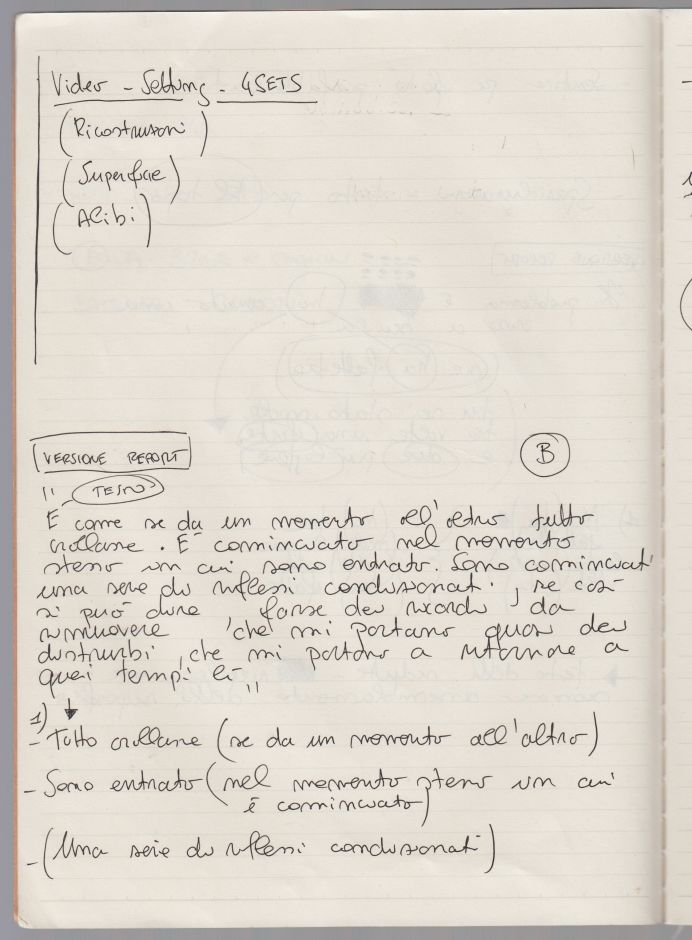 Video - Setting - 4SETS
(Ricostruzioni)
(Superficie)
(Alibi)
VERSIONE REPORT
B
" TESTO
È come se da un momento all'altro tutto
crollasse. È cominciato nel momento
stesso in cui sono entrato. Sono cominciati
una serie di riflessi condizionati, se così
si può dire forse dei ricordi da
rimuovere che mi portano quasi dei
disturbi, che mi portano a ritornare a
quei tempi lì "
1)
- Tutto crollasse (se da un momento all'altro)
- Sono entrato (nel momento stesso in cui
è cominciato)
- (Una serie di riflessi condizionati)